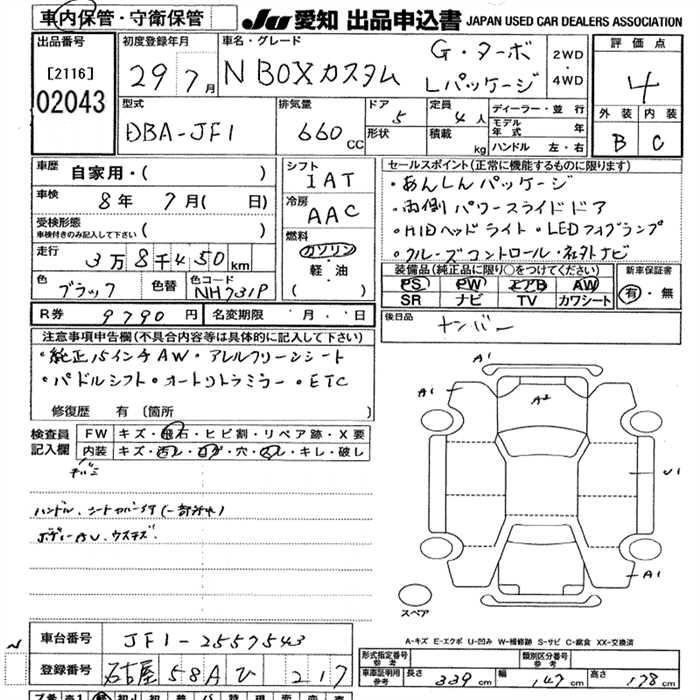 車内保管・守衛保管
JU 愛知 出品申込書 JAPAN USED CAR DEALERS ASSOCIATION
出品番号
[2116]
02043
初度登録年月
29年7月
車名・グレード
N BOXカスタム
G・ターボ
Lパッケージ
2WD
・
4WD
評価点
4
外装 内装
B C
型式
DBA-JF1
排気量
660 CC
ドア 5
形状
定員 4人
積載 kg
ディーラー・並行
モデル年式 年
ハンドル 左・右
車歴 自家用・( )
車検 8年 7月( 日)
受検形態
車検付きのみ記入して下さい ( )
走行 3万8千450km
色 ブラック 色替 色コード NH731P
シフト
IAT
冷房
AAC
燃料
ガソリン
・
軽・油
( )
セールスポイント(正常に機能するものに限ります)
・あんしんパッケージ
・両側パワースライドドア
・HIDヘッドライト・LEDフォグランプ
・クルーズコントロール・社外ナビ
装備品(純正品に限り○をつけてください)
PS PW エアB AW
SR ナビ TV カワシート
新車保証書
有・無
R券 9790円 名変期限 月 日
後日品 ナンバー
注意事項申告欄(不具合内容等は具体的に記入して下さい)
・純正15インチAW・アレルクリーンシート
・パドルシフト・オートリトラミラー・ETC
修復歴 有(箇所 )
検査員記入欄
FW キズ・飛石・ヒビ割・リペア跡・X要
内装 キズ・汚レ・コゲ・穴・スレ・キレ・破レ
A1
A1
A2
U1
A1
スペア
A-キズ E-エクボ U-凹み W-補修跡 S-サビ C-腐食 XX-交換済
車台番号 JF1-2557543
登録番号 名古屋 58A ひ 217
形式指定番号
参考
類別区分番号
参考
車庫証明用
参考
長さ 339cm 幅 147cm 高さ 178cm